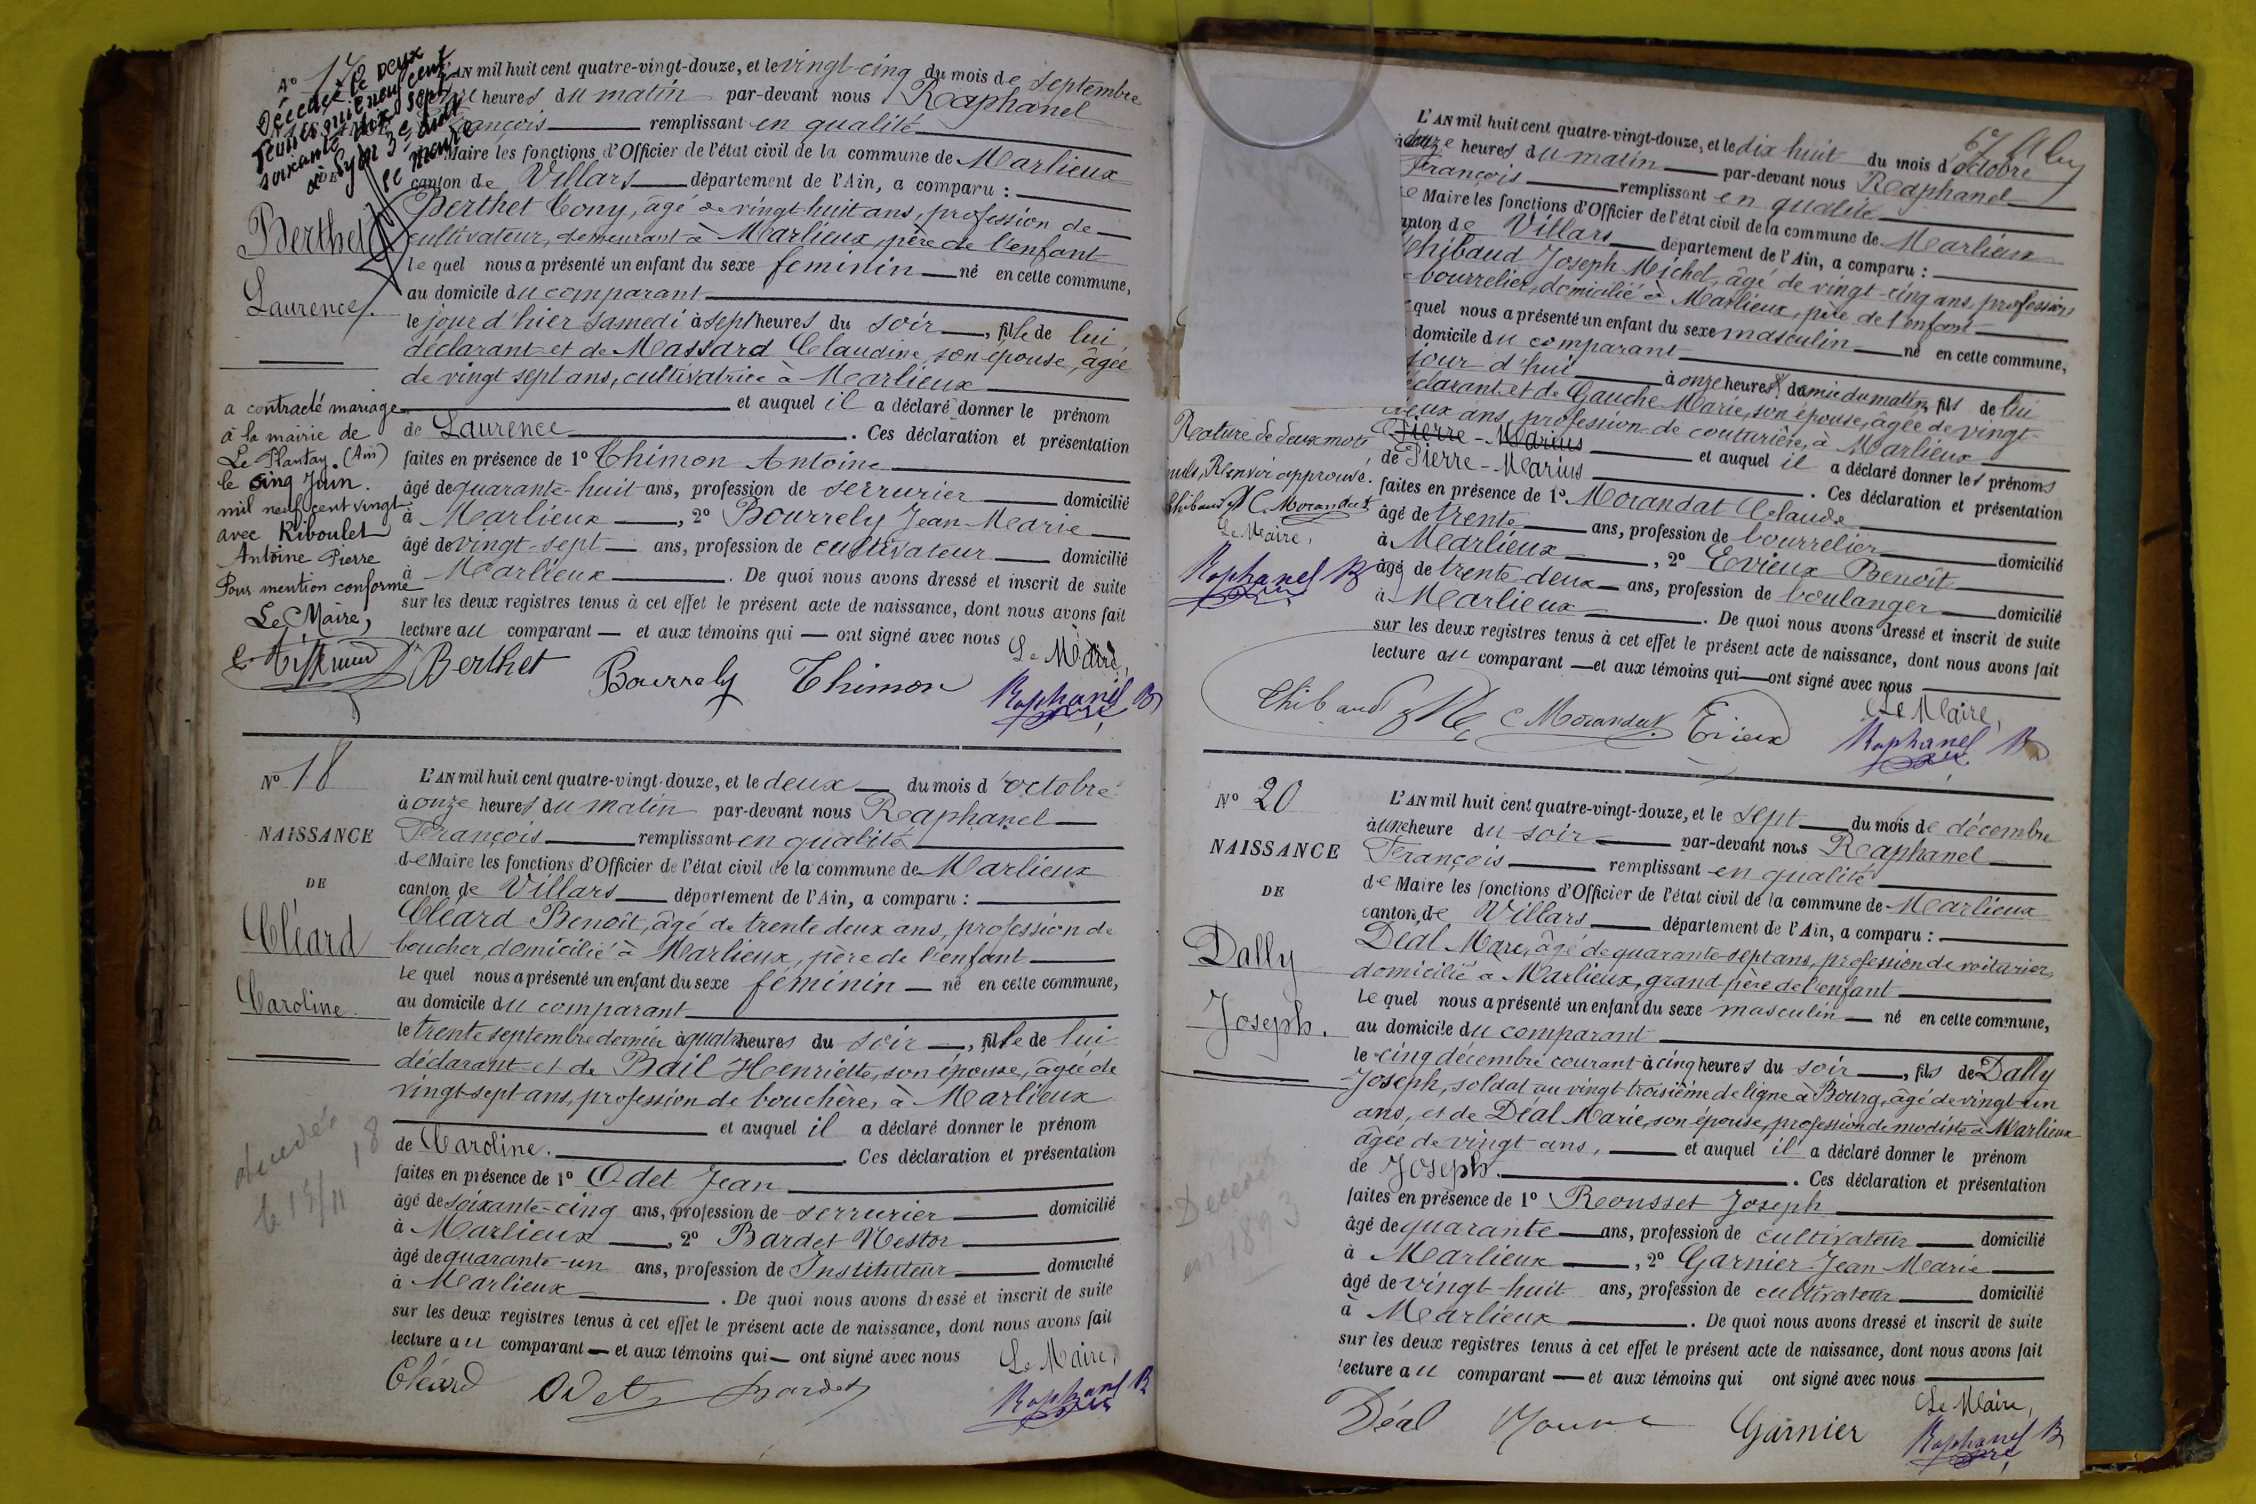 N° 17
Décédée le Deux
Février mil neuf cent
soixante dix sept
à Lyon 3e
le maire
Berthet
Laurence.
L'AN mil huit cent quatre-vingt-douze, et le vingt-cinq du mois de septembre
heures du matin par-devant nous Raphanel
François remplissant en qualité
Maire les fonctions d'Officier de l'état civil de la commune de Marlieux
canton de Villars département de l'Ain, a comparu :
Berthet Tony, âgé de vingt huit ans, profession de
cultivateur, demeurant à Marlieux, père de l'enfant
lequel nous a présenté un enfant du sexe féminin né en cette commune,
au domicile du comparant
le jour d'hier samedi à sept heures du soir, fille de lui
déclarant et de Massard Claudine, son épouse, âgée
de vingt sept ans, cultivatrice à Marlieux
et auquel il a déclaré donner le prénom
de Laurence. Ces déclaration et présentation
faites en présence de 1° Thimon Antoine
âgé de quarante-huit ans, profession de serrurier domicilié
à Marlieux, 2° Bourrely Jean-Marie
âgé de vingt-sept ans, profession de cultivateur domicilié
à Marlieux. De quoi nous avons dressé et inscrit de suite
sur les deux registres tenus à cet effet le présent acte de naissance, dont nous avons fait
lecture au comparant et aux témoins qui ont signé avec nous
Le Maire,
Berthet Bourrely Thimon Raphanel
a contracté mariage
à la mairie de
Le Plantay. (Ain)
le cinq Juin.
mil neuf cent vingt
avec Riboulet
Antoine Pierre
Pour mention conforme
Le Maire,
N° 18
NAISSANCE
DE
Cléard
Caroline.
décédée
le 15/11 18
L'AN mil huit cent quatre-vingt-douze, et le deux du mois d'octobre
à onze heures du matin par-devant nous Raphanel
François remplissant en qualité
de Maire les fonctions d'Officier de l'état civil de la commune de Marlieux
canton de Villars département de l'Ain, a comparu :
Cléard Benoît, âgé de trente deux ans, profession de
boucher, domicilié à Marlieux, père de l'enfant
lequel nous a présenté un enfant du sexe féminin né en cette commune,
au domicile du comparant
le trente septembre dernier à quatre heures du soir, fille de lui
déclarant et de Bail Henriette, son épouse, âgée de
vingt-sept ans, profession de bouchère, à Marlieux
et auquel il a déclaré donner le prénom
de Caroline. Ces déclaration et présentation
faites en présence de 1° Odet Jean
âgé de soixante-cinq ans, profession de serrurier domicilié
à Marlieux, 2° Bardet Nestor
âgé de quarante-un ans, profession de Instituteur domicilié
à Marlieux. De quoi nous avons dressé et inscrit de suite
sur les deux registres tenus à cet effet le présent acte de naissance, dont nous avons fait
lecture au comparant et aux témoins qui ont signé avec nous
Le Maire,
Cléard Odet Bardet Raphanel
L'AN mil huit cent quatre-vingt-douze, et le dix huit du mois d'octobre
à douze heures du matin par-devant nous Raphanel
François remplissant en qualité
de Maire les fonctions d'Officier de l'état civil de la commune de Marlieux
canton de Villars département de l'Ain, a comparu :
Thibaud Joseph Michel, âgé de vingt-cinq ans, profession
bourrelier, domicilié à Marlieux, père de l'enfant
quel nous a présenté un enfant du sexe masculin né en cette commune,
domicile du comparant
jour d'hui à onze heures demie du matin, fils de lui
déclarant et de Gauche Marie, son épouse, âgée de vingt-
deux ans, profession de couturière, à Marlieux
Pierre-Marius et auquel il a déclaré donner les prénoms
de Pierre-Marius. Ces déclaration et présentation
faites en présence de 1° Morandat Claude
âgé de trente ans, profession de bourrelier domicilié
à Marlieux, 2° Evieux Benoît
âgé de trente deux ans, profession de boulanger domicilié
à Marlieux. De quoi nous avons dressé et inscrit de suite
sur les deux registres tenus à cet effet le présent acte de naissance, dont nous avons fait
lecture au comparant et aux témoins qui ont signé avec nous
Le Maire,
Thibaud C Morandat Evieux Raphanel
Rature de deux mots
nuls, Renvoi approuvé.
Thibaud C. Morandat
Le Maire,
Raphanel
N° 20
NAISSANCE
DE
Dally
Joseph.
Décédé
en 1893
L'AN mil huit cent quatre-vingt-douze, et le sept du mois de décembre
à une heure du soir par-devant nous Raphanel
François remplissant en qualité
de Maire les fonctions d'Officier de l'état civil de la commune de Marlieux
canton de Villars département de l'Ain, a comparu :
Déal Marc, âgé de quarante-sept ans, profession de voiturier,
domicilié à Marlieux, grand père de l'enfant
lequel nous a présenté un enfant du sexe masculin né en cette commune,
au domicile du comparant
le cinq décembre courant à cinq heures du soir, fils de Dally
Joseph, soldat au vingt troisième de ligne à Bourg, âgé de vingt-un
ans, et de Déal Marie, son épouse, profession de modiste à Marlieux
âgée de vingt ans, et auquel il a déclaré donner le prénom
de Joseph. Ces déclaration et présentation
faites en présence de 1° Rousset Joseph
âgé de quarante ans, profession de cultivateur domicilié
à Marlieux, 2° Garnier Jean Marie
âgé de vingt-huit ans, profession de cultivateur domicilié
à Marlieux. De quoi nous avons dressé et inscrit de suite
sur les deux registres tenus à cet effet le présent acte de naissance, dont nous avons fait
lecture au comparant et aux témoins qui ont signé avec nous
Le Maire,
Déal Garnier Raphanel